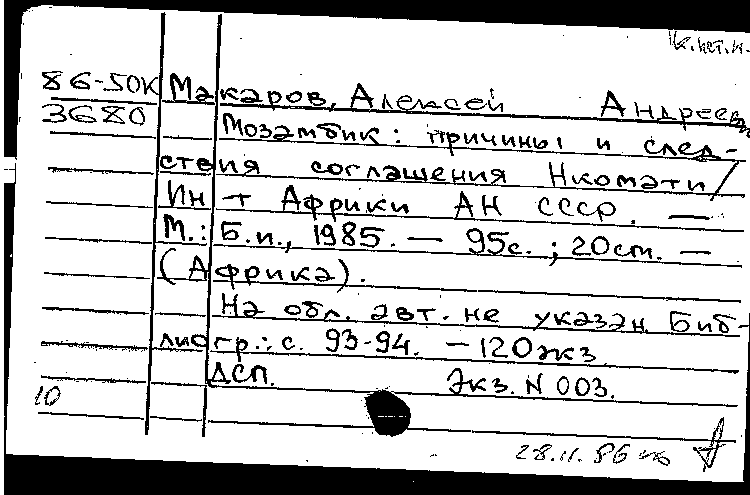 к.нет.н-
86-50К Макаров, Алексей Андреев
3680 Мозамбик: причины и след-
ствия соглашения Нкомати/
Ин-т Африки АН СССР. —
М.: Б.и., 1985. — 95с.; 20см. —
(Африка).
На обл. авт. не указан. Биб-
лиогр.: с. 93-94. — 120экз.
ДСП. Экз. N 003.
10
28.11.86